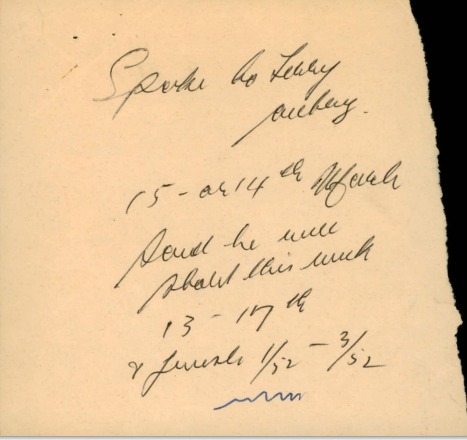 Spoke to Terry
15 - or 14th March
Said he will
start this week
13 - 17th
& finish 1/52 - 3/52